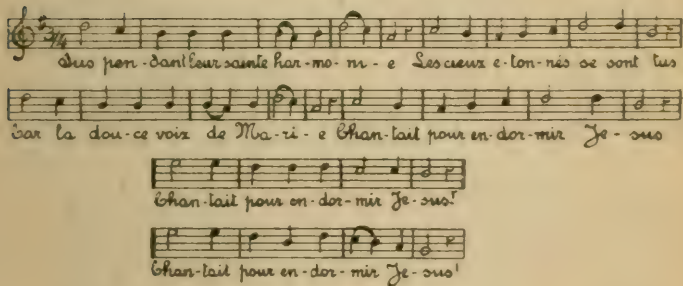 Sus pen-dant leur sainte har-mo-ni-e Les cieux e-ton-nés se sont tus
Car la dou-ce voix de Ma-ri-e Chan-tait pour en-dor-mir Je-sus
Chan-tait pour en-dor-mir Je-sus!
Chan-tait pour en-dor-mir Je-sus!